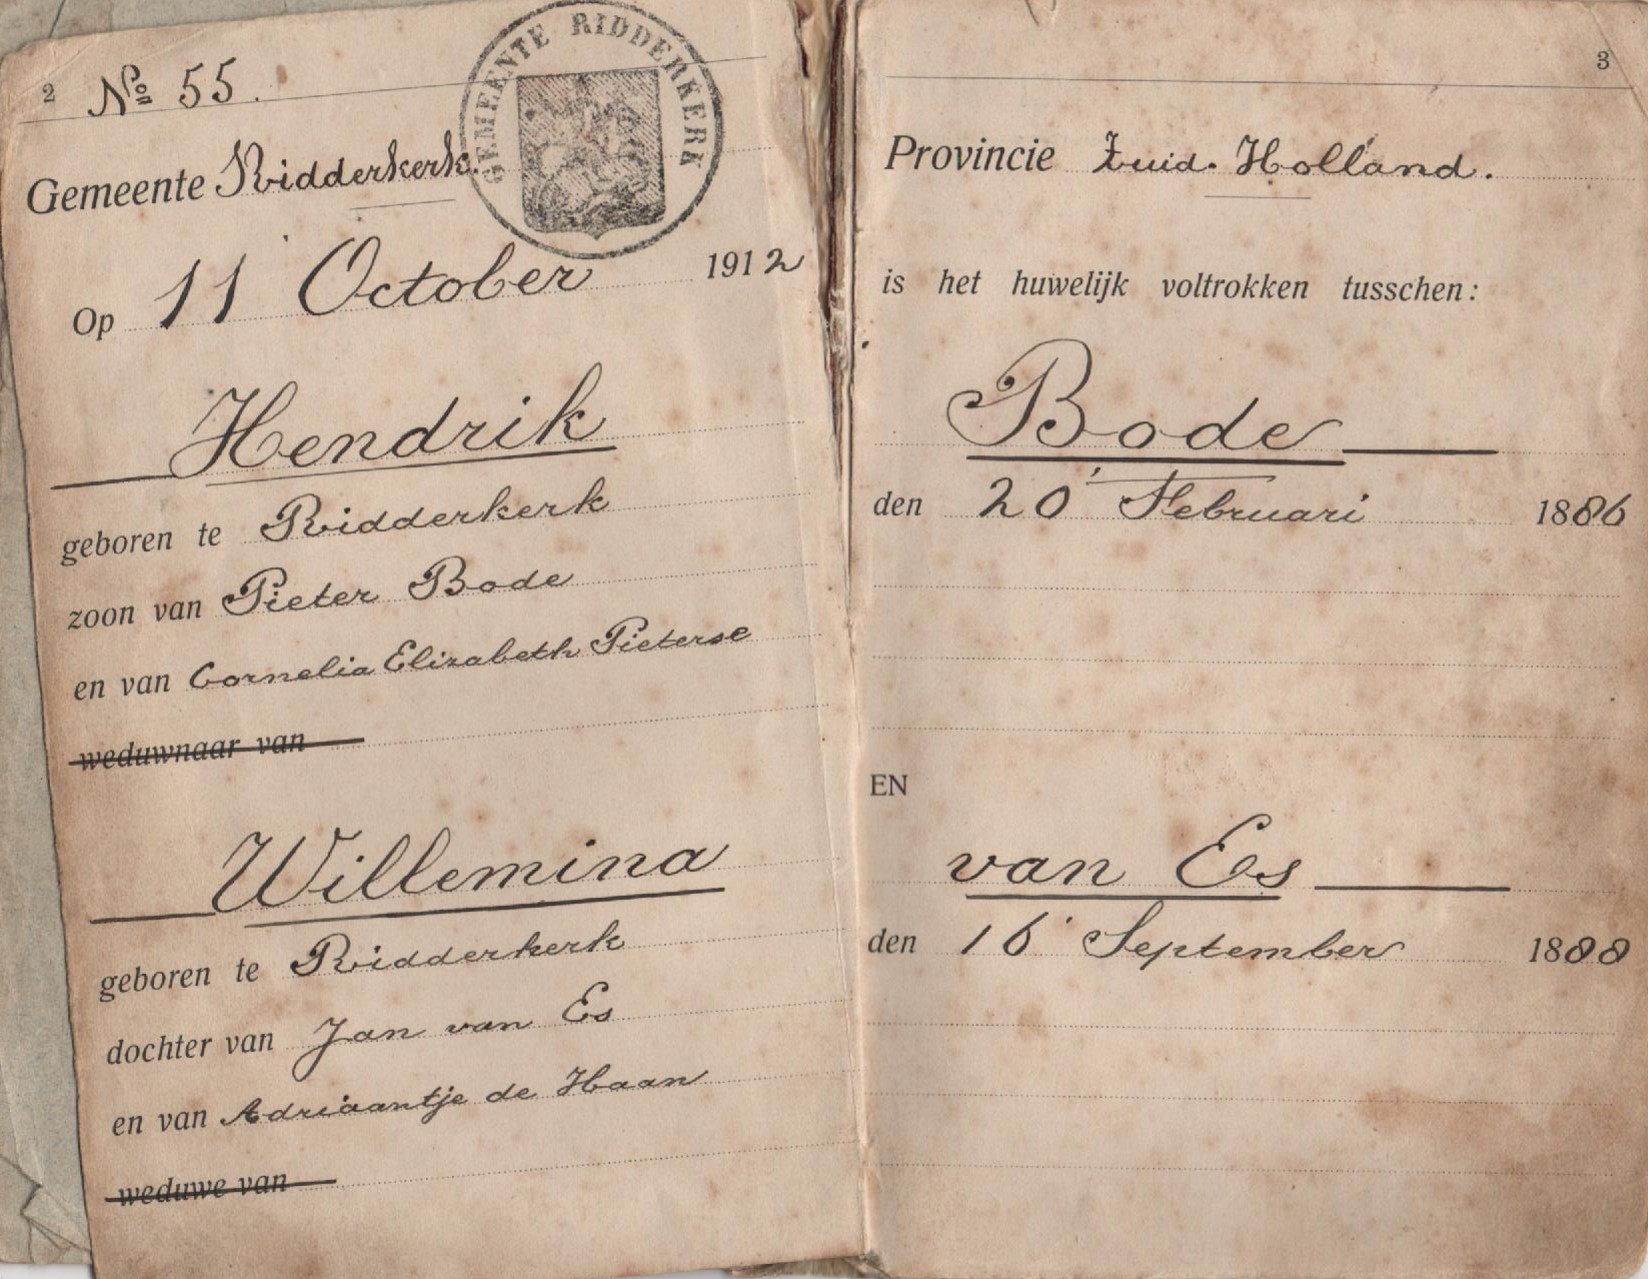 2 No 55.
GEMEENTE RIDDERKERK
Gemeente Ridderkerk.
Op 11 October 1912
Hendrik
geboren te Ridderkerk
zoon van Pieter Bode
en van Cornelia Elizabeth Pieterse
weduwnaar van
Willemina
geboren te Ridderkerk
dochter van Jan van Es
en van Adriaantje de Haan
weduwe van
3
Provincie Zuid-Holland.
is het huwelijk voltrokken tusschen:
Bode
den 20 Februari 1886
EN
van Es
den 16 September 1888